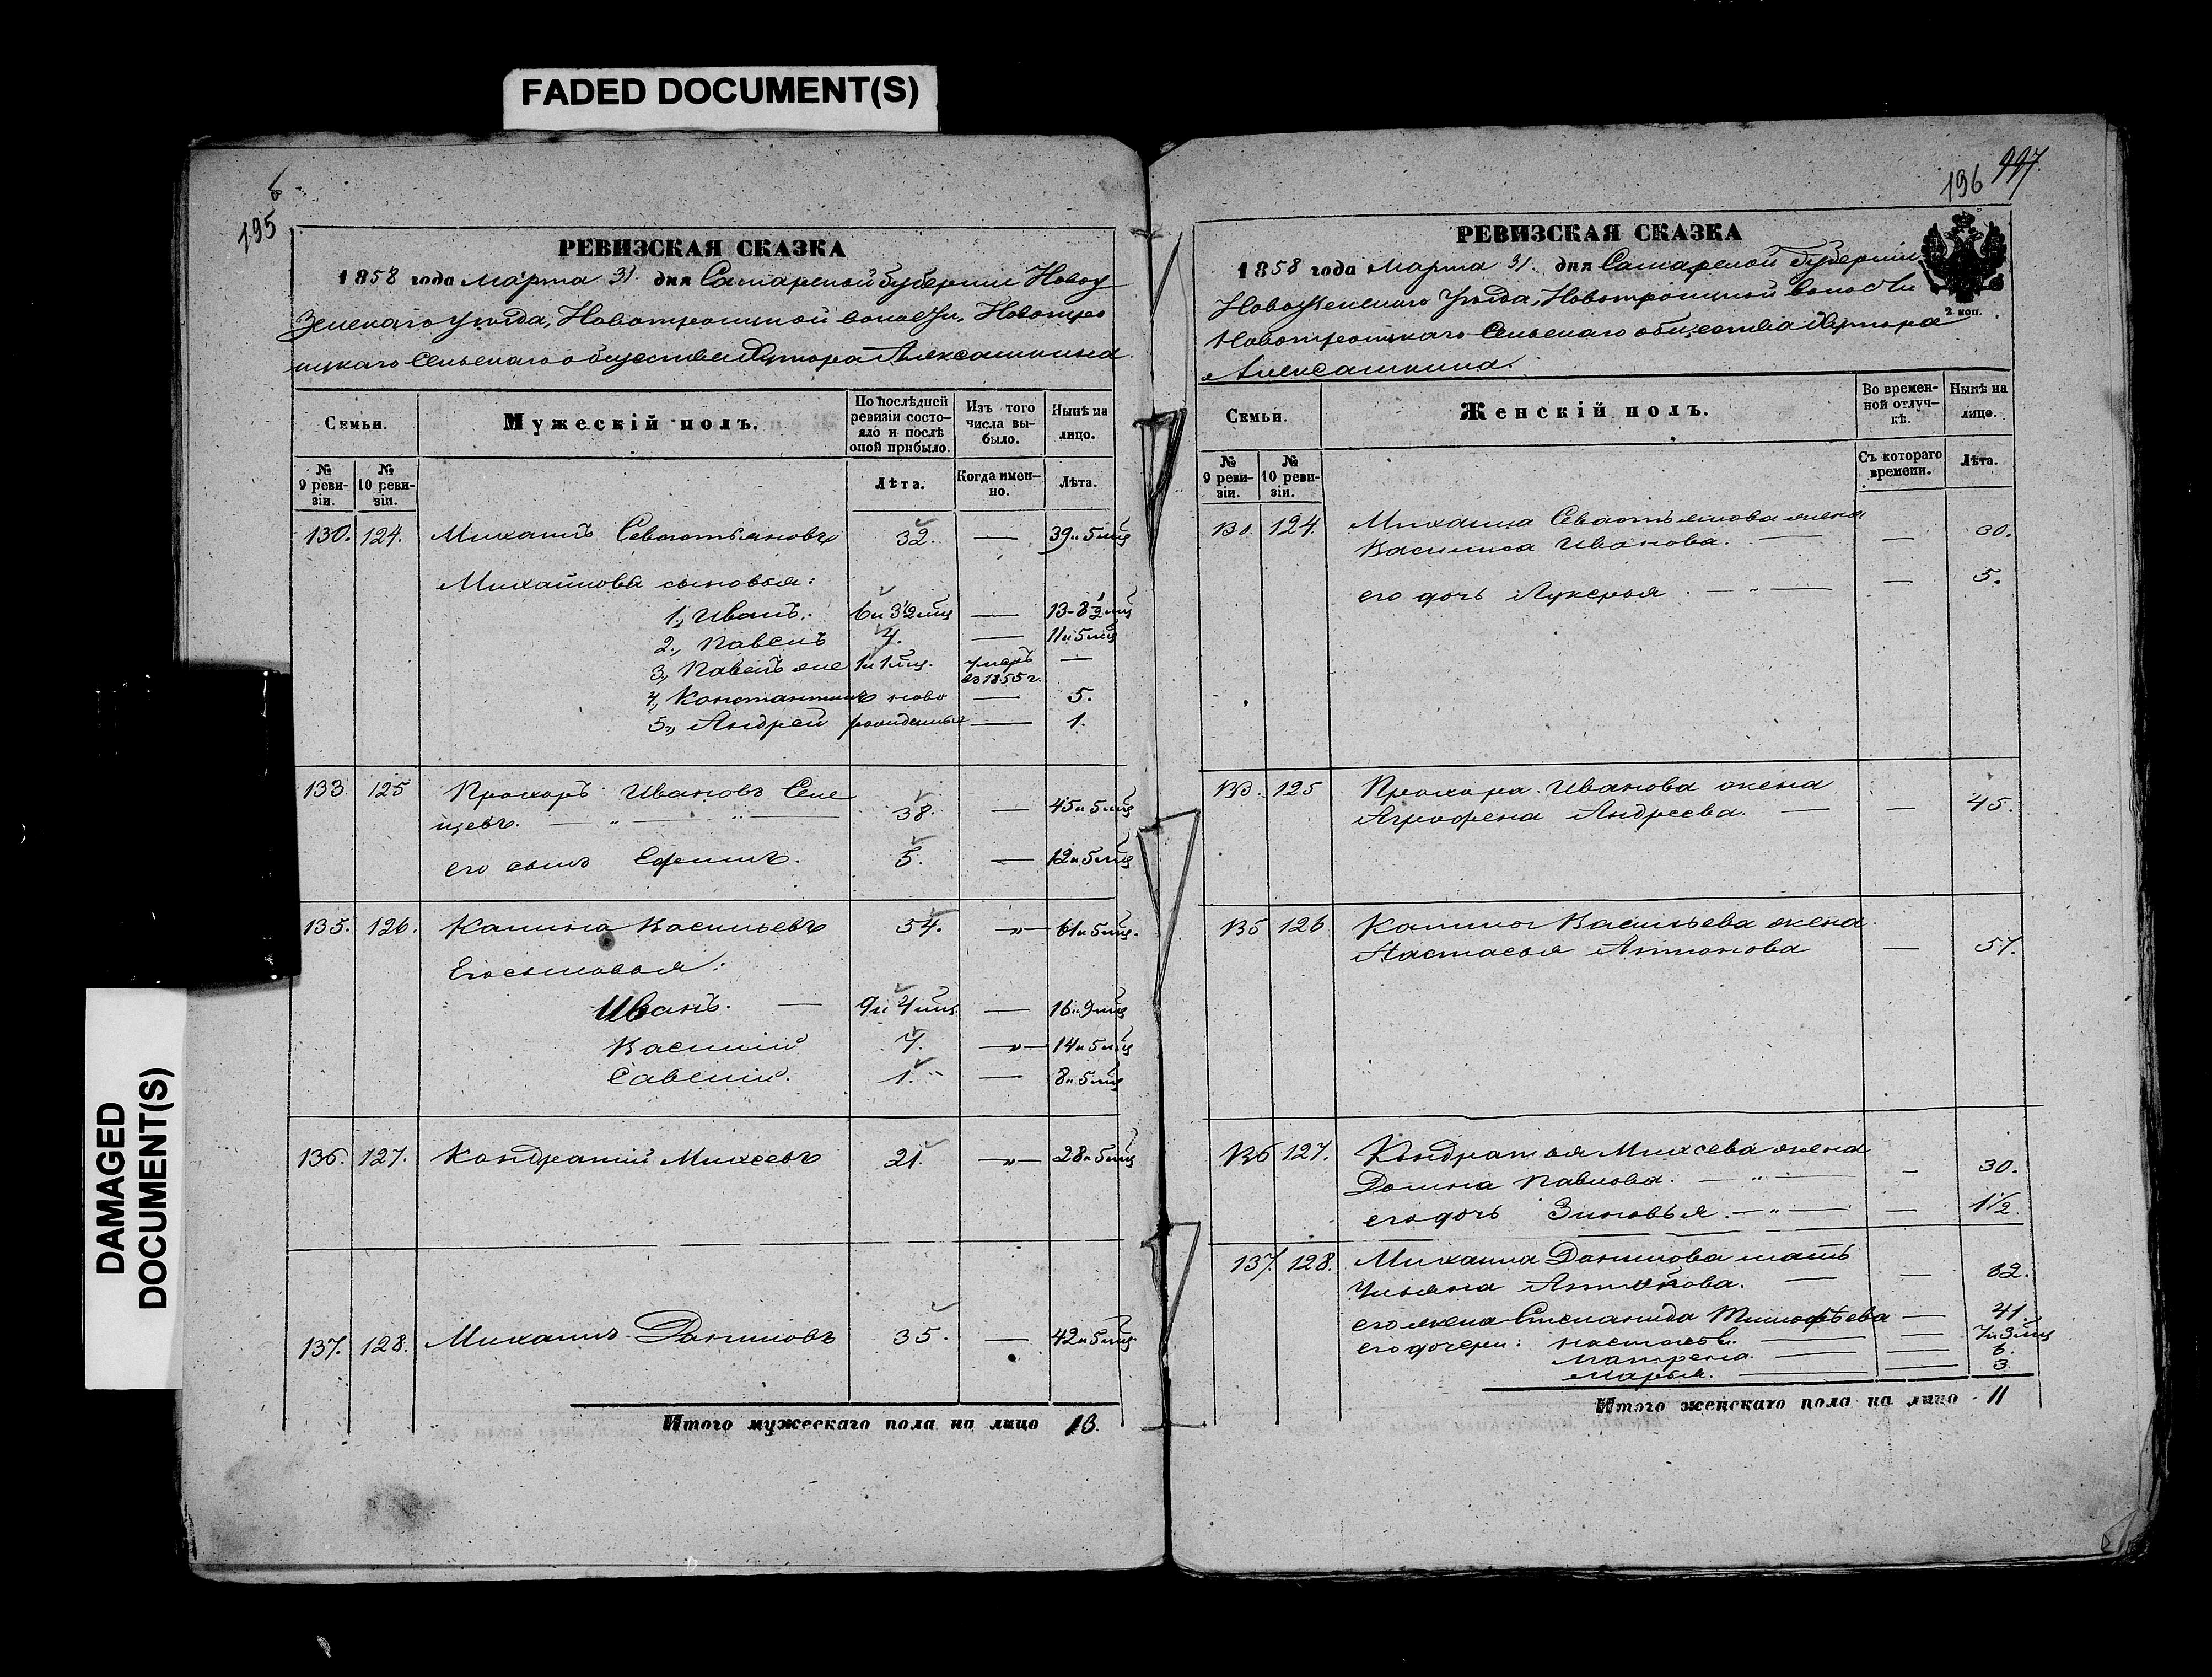 FADED DOCUMENT(S)
DAMAGED
DOCUMENT(S)
195
РЕВИЗСКАЯ СКАЗКА
1858 года Марта 31 дня Самарской губернии Новоу
зенскаго уѣзда, Новотроицкой волости, Новотро
ицкаго Сельскаго общества Хутора Алексашкина
Семьи.
Мужескій полъ.
По послѣдней ревизіи состояло и послѣ оной прибыло.
Изъ того числа выбыло.
Нынѣ на лицо.
№ 9 ревизіи.
№ 10 ревизіи.
Лѣта.
Когда именно.
Лѣта.
130. 124. Михаилъ Севастьяновъ 32. — 39 и 5 мц
Михайловы сыновья:
1, Иванъ. 6 и 3½ мц — 13-8½ мц
2, Павелъ 4. — 11 и 5 мц
3, Павелъ же 1 и 1 мц. умеръ —
въ 1855 г.
4, Константинъ ново — 5.
5, Андрей рожденные — 1.
133. 125 Прохоръ Ивановъ Сели
щевъ. — „ — „ — 38. — 45 и 5 мц
его сынъ Ефимъ. 5. — 12 и 5 мц
135. 126. Калина Васильевъ 54. —„— 61 и 5 мц.
Его сыновья:
Иванъ. — 9 и 4 мц. — 16 и 9 мц
Василій 7. —„— 14 и 5 мц
Савелій. 1. — 8 и 5 мц
136. 127. Кондратий Михеевъ 21. —„— 28 и 5 мц
137. 128. Михаилъ Даниловъ 35. — 42 и 5 мц.
Итого мужескаго пола на лицо 13.
196 997.
РЕВИЗСКАЯ СКАЗКА
1858 года Марта 31. дня Самарской Губернии
Новоузенскаго Уѣзда, Новотроицкой волости
2 коп.
Новотроицкаго Сельскаго общества Хутора
Алексашкина.
Семьи.
Женскій полъ.
Во временной отлучкѣ.
Нынѣ на лицо.
№ 9 ревизіи.
№ 10 ревизіи.
Съ котораго времени.
Лѣта.
130 124. Михаила Севастьянова жена
Василиса Иванова. — — 30.
его дочь Лукерья. — „ — — 5.
133. 125 Прохора Иванова жена
Агрофена Андреева. — — 45.
135 126 Калины Васильева жена
Настасья Антонова — 57.
136 127. Кондратья Михеева жена
Домна Павлова. — „ — — 30.
его дочь Зиновья. — „ — — 1½.
137. 128. Михаила Данилова мать
Ульяна Антонова. — — 82.
его жена Степанида Тимофѣева — 41.
его дочери: Настасья. — — 7 и 3 мц
Матрена. — — 6.
Марья. — — 3.
Итого женскаго пола на лицо 11